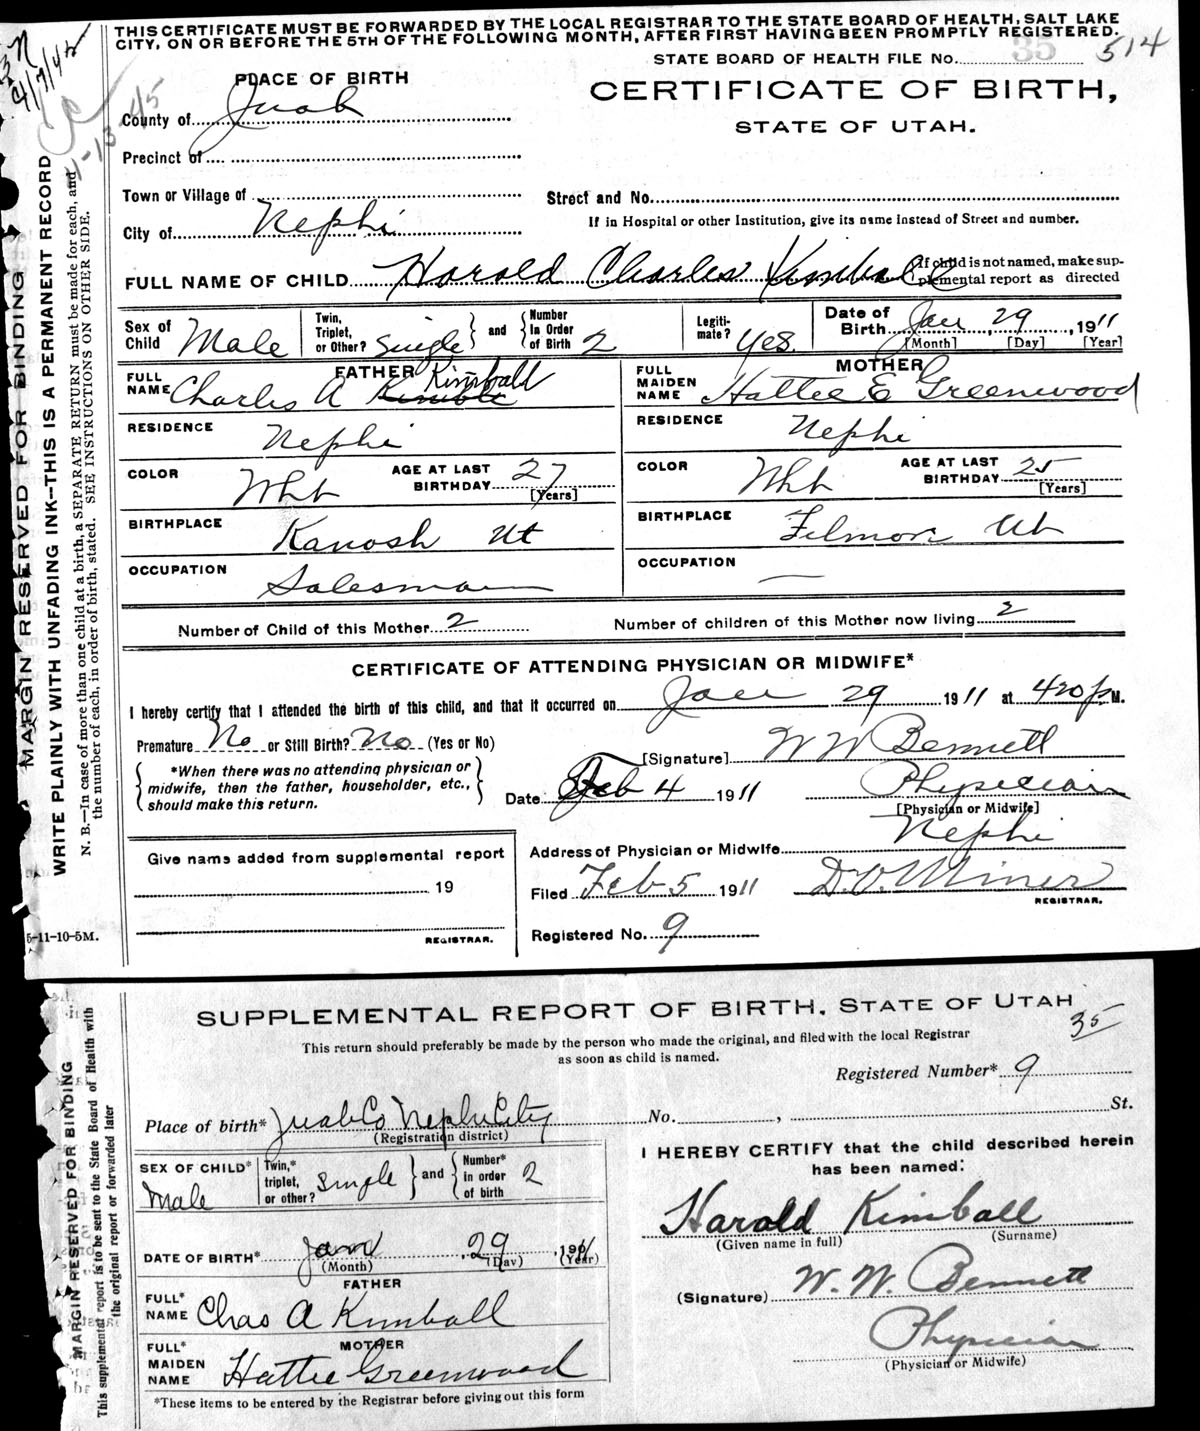 THIS CERTIFICATE MUST BE FORWARDED BY THE LOCAL REGISTRAR TO THE STATE BOARD OF HEALTH, SALT LAKE
CITY, ON OR BEFORE THE 5TH OF THE FOLLOWING MONTH, AFTER FIRST HAVING BEEN PROMPTLY REGISTERED.
STATE BOARD OF HEALTH FILE No. 35 514
PLACE OF BIRTH
CERTIFICATE OF BIRTH,
STATE OF UTAH.
County of Juab
Precinct of
Town or Village of
Street and No.
City of Nephi
If in Hospital or other Institution, give its name instead of Street and number.
FULL NAME OF CHILD Harold Charles Kimball
If child is not named, make sup-
plemental report as directed
Sex of Child Male
Twin, Triplet, or Other? Single and Number In Order of Birth 2
Legiti-mate? Yes.
Date of Birth Jan 29, 1911
[Month] [Day] [Year]
FATHER
FULL NAME Charles A Kimball
RESIDENCE Nephi
COLOR Wht AGE AT LAST BIRTHDAY 27
[Years]
BIRTHPLACE Kanosh Ut
OCCUPATION Salesman
MOTHER
FULL MAIDEN NAME Hattee E Greenwood
RESIDENCE Nephi
COLOR Wht AGE AT LAST BIRTHDAY 25
[Years]
BIRTHPLACE Filmore Ut
OCCUPATION —
Number of Child of this Mother 2 Number of children of this Mother now living 2
CERTIFICATE OF ATTENDING PHYSICIAN OR MIDWIFE*
I hereby certify that I attended the birth of this child, and that it occurred on Jan 29 1911 at 420 p M.
Premature No or Still Birth? No (Yes or No)
*When there was no attending physician or
midwife, then the father, householder, etc.,
should make this return.
[Signature] W W Bennett
Date Feb 4 1911 Physician
[Physician or Midwife]
Address of Physician or Midwife Nephi
Give name added from supplemental report
19
REGISTRAR.
Filed Feb 5 1911 D.O. Miner
REGISTRAR.
Registered No. 9
5-11-10-5M.
MARGIN RESERVED FOR BINDING
WRITE PLAINLY WITH UNFADING INK--THIS IS A PERMANENT RECORD
N. B.—In case of more than one child at a birth, a SEPARATE RETURN must be made for each, and
the number of each, in order of birth, stated. SEE INSTRUCTIONS ON OTHER SIDE.
SUPPLEMENTAL REPORT OF BIRTH, STATE OF UTAH
35
This return should preferably be made by the person who made the original, and filed with the local Registrar
as soon as child is named.
Registered Number* 9
Place of birth* Juab Co Nephi City No. , St.
(Registration district)
SEX OF CHILD* Male
Twin,* triplet, or other? Single and Number* in order of birth 2
DATE OF BIRTH* Jan 29, 1911
(Month) (Day) (Year)
FATHER
FULL* NAME Chas A Kimball
MOTHER
FULL* MAIDEN NAME Hattie Greenwood
*These items to be entered by the Registrar before giving out this form
I HEREBY CERTIFY that the child described herein
has been named:
Harold Kimball
(Given name in full) (Surname)
(Signature) W. W. Bennett
Physician
(Physician or Midwife)
MARGIN RESERVED FOR BINDING
This supplemental report is to be sent to the State Board of Health with
the original report or forwarded later